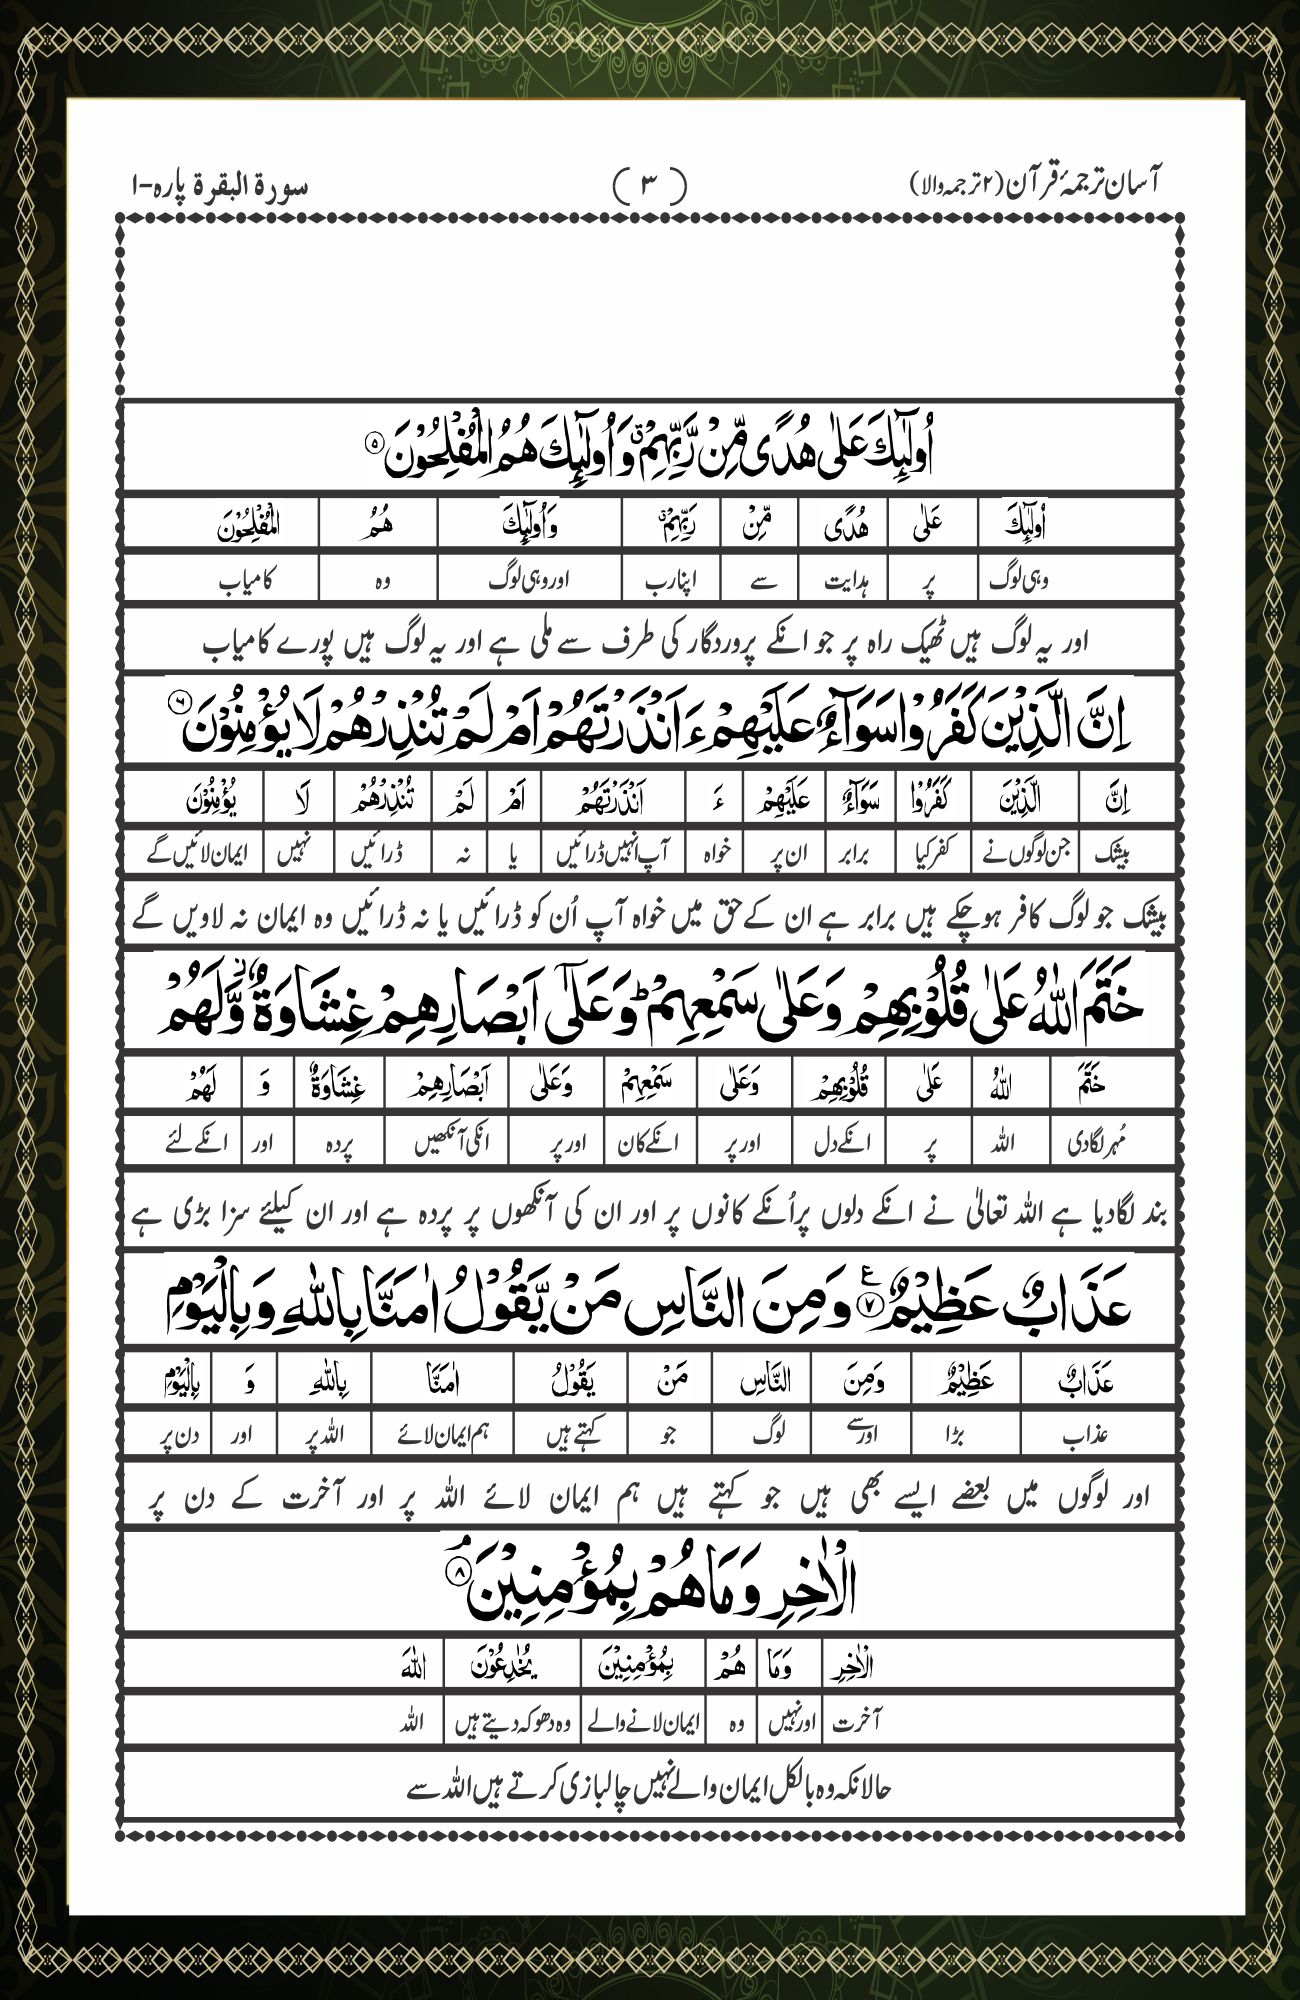 آسان ترجمۂ قرآن (۲ ترجمہ والا) ( ۳ ) سورة البقرة پارہ-۱
اُولٰٓئِكَ عَلٰى هُدًى مِّنْ رَّبِّهِمْ ۙ وَاُولٰٓئِكَ هُمُ الْمُفْلِحُوْنَ ۵
اُولٰٓئِكَ عَلٰى هُدًى مِّنْ رَبِّهِمْ ۙ وَاُولٰٓئِكَ هُمُ الْمُفْلِحُوْنَ
وہی لوگ پر ہدایت سے اپنا رب اور وہی لوگ وہ کامیاب
اور یہ لوگ ہیں ٹھیک راہ پر جو انکے پروردگار کی طرف سے ملی ہے اور یہ لوگ ہیں پورے کامیاب
اِنَّ الَّذِيْنَ كَفَرُوْا سَوَآءٌ عَلَيْهِمْ ءَاَنْذَرْتَهُمْ اَمْ لَمْ تُنْذِرْهُمْ لَا يُؤْمِنُوْنَ ۶
اِنَّ الَّذِيْنَ كَفَرُوْا سَوَآءٌ عَلَيْهِمْ ءَ اَنْذَرْتَهُمْ اَمْ لَمْ تُنْذِرْهُمْ لَا يُؤْمِنُوْنَ
بیشک جن لوگوں نے کفر کیا برابر ان پر خواہ آپ انہیں ڈرائیں یا نہ ڈرائیں نہیں ایمان لائیں گے
بیشک جو لوگ کافر ہو چکے ہیں برابر ہے ان کے حق میں خواہ آپ اُن کو ڈرائیں یا نہ ڈرائیں وہ ایمان نہ لاویں گے
خَتَمَ اللّٰهُ عَلٰى قُلُوْبِهِمْ وَعَلٰى سَمْعِهِمْ ؕ وَعَلٰٓى اَبْصَارِهِمْ غِشَاوَةٌ ۫ وَّلَهُمْ
خَتَمَ اللّٰهُ عَلٰى قُلُوْبِهِمْ وَعَلٰى سَمْعِهِمْ وَعَلٰى اَبْصَارِهِمْ غِشَاوَةٌ وَ لَهُمْ
مُہر لگادی اللہ پر انکے دل اور پر انکے کان اور پر انکی آنکھیں پردہ اور انکے لئے
بند لگادیا ہے اللہ تعالیٰ نے انکے دلوں پر اُنکے کانوں پر اور ان کی آنکھوں پر پردہ ہے اور ان کیلئے سزا بڑی ہے
عَذَابٌ عَظِيْمٌ ۷ ع وَمِنَ النَّاسِ مَنْ يَّقُوْلُ اٰمَنَّا بِاللّٰهِ وَبِالْيَوْمِ
عَذَابٌ عَظِيْمٌ وَمِنَ النَّاسِ مَنْ يَقُوْلُ اٰمَنَّا بِاللّٰهِ وَ بِالْيَوْمِ
عذاب بڑا اور سے لوگ جو کہتے ہیں ہم ایمان لائے اللہ پر اور دن پر
اور لوگوں میں بعضے ایسے بھی ہیں جو کہتے ہیں ہم ایمان لائے اللہ پر اور آخرت کے دن پر
الْاٰخِرِ وَمَا هُمْ بِمُؤْمِنِيْنَ ۸ ۘ
الْاٰخِرِ وَمَا هُمْ بِمُؤْمِنِيْنَ يُخٰدِعُوْنَ اللّٰهَ
آخرت اور نہیں وہ ایمان لانے والے وہ دھوکہ دیتے ہیں اللہ
حالانکہ وہ بالکل ایمان والے نہیں چالبازی کرتے ہیں اللہ سے